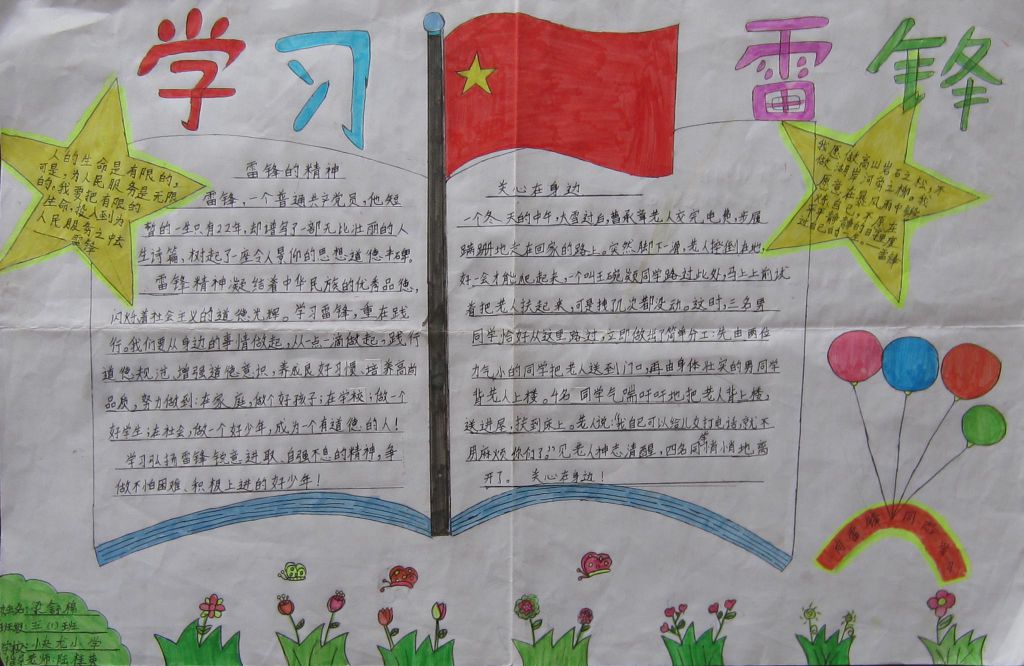 学习雷锋
人的生命是有限的,
可是,为人民服务是无限
的,我要把有限的
生命,投入到为
人民服务之中去
——雷锋
雷锋的精神
雷锋,一个普通共产党员,他短
暂的一生只有22年,却谱写了一部无比壮丽的人
生诗篇,树起了一座令人景仰的思想道德丰碑。
雷锋精神凝结着中华民族的优秀品德,
闪烁着社会主义的道德光辉。学习雷锋,重在践
行。我们要从身边的事情做起,从一点一滴做起,践行
道德规范,增强道德意识,养成良好习惯,培养高尚
品质,努力做到:在家庭,做个好孩子;在学校;做一个
好学生;在社会,做一个好少年,成为一个有道德的人!
学习弘扬雷锋锐意进取、自强不息的精神,争
做不怕困难、积极上进的好少年!
关心在身边
一个冬天的中午,大雪过后,曹承蕃老人交完电费,步履
蹒跚地走在回家的路上。突然脚下一滑,老人摔倒在地,
好一会才能爬起来,一个叫王晓凝同学路过此处,马上上前试
着把老人扶起来,可是拽几次都没动。这时,三名男
同学恰好从这里路过,立即做出了简单分工:先由两位
力气小的同学把老人送到门口,再由身体壮实的男同学
背老人上楼。4名同学气喘吁吁地把老人背上楼,
送进屋,扶到床上。老人说:“我自己可以给儿女打电话,就不
用麻烦你们了。”见老人神志清醒,四名同学悄悄地离
开了。关心在身边!
我愿做高山岩石之松,不
做湖岸河旁之柳。我
愿意在暴风雨中锻
炼自己,不愿在
平平静静的日子里
过自己的一生。
——雷锋
向雷锋同志学习
姓名:
班级:五(1)班
学校:快龙小学
指导老师:陆桂英